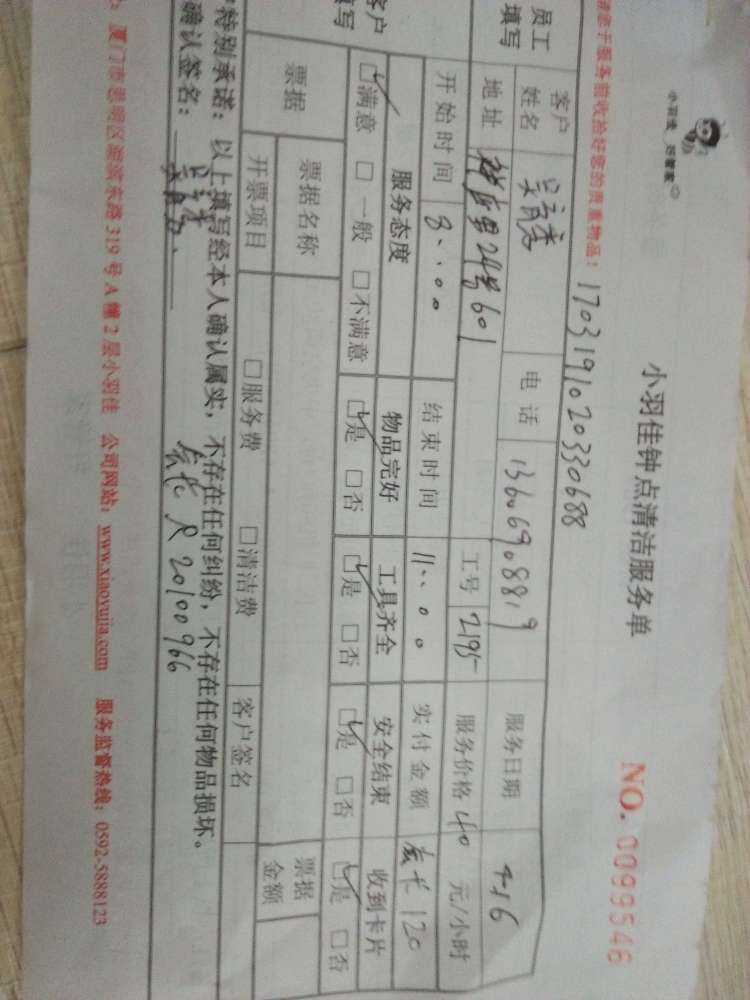 小羽佳钟点清洁服务单
NO. 0099546
1703191020330688
服务验收拾好您的贵重物品！
员工填写 客户姓名 电话 13606908819 服务日期 4-16
地址 24号601 工号 2195 服务价格 40 元/小时
开始时间 8:00 结束时间 11:00 实付金额 120
客户填写 服务态度 物品完好 工具齐全 安全结束 收到卡片
□满意 □一般 □不满意 □是 □否 □是 □否 □是 □否 □是 □否
票据 票据名称 票据金额
开票项目 □服务费 □清洁费 客户签名
特别承诺：以上填写经本人确认属实，不存在任何纠纷，不存在任何物品损坏。
确认签名： 20100966
厦门市思明区湖滨东路319号A幢2层小羽佳 公司网站：www.xiaoyujia.com 服务监督热线：0592-5888123